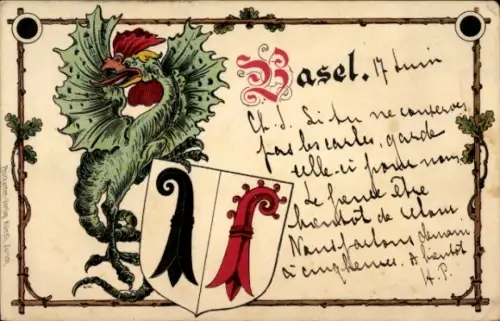 Basel. 17 Juin
Ch. J. Si tu ne conserves
pas les cartes, garde
celle-ci pour nous,
Je pense être
bientôt de
Nous partons demain
à cinq heures. A bientôt
H. P.